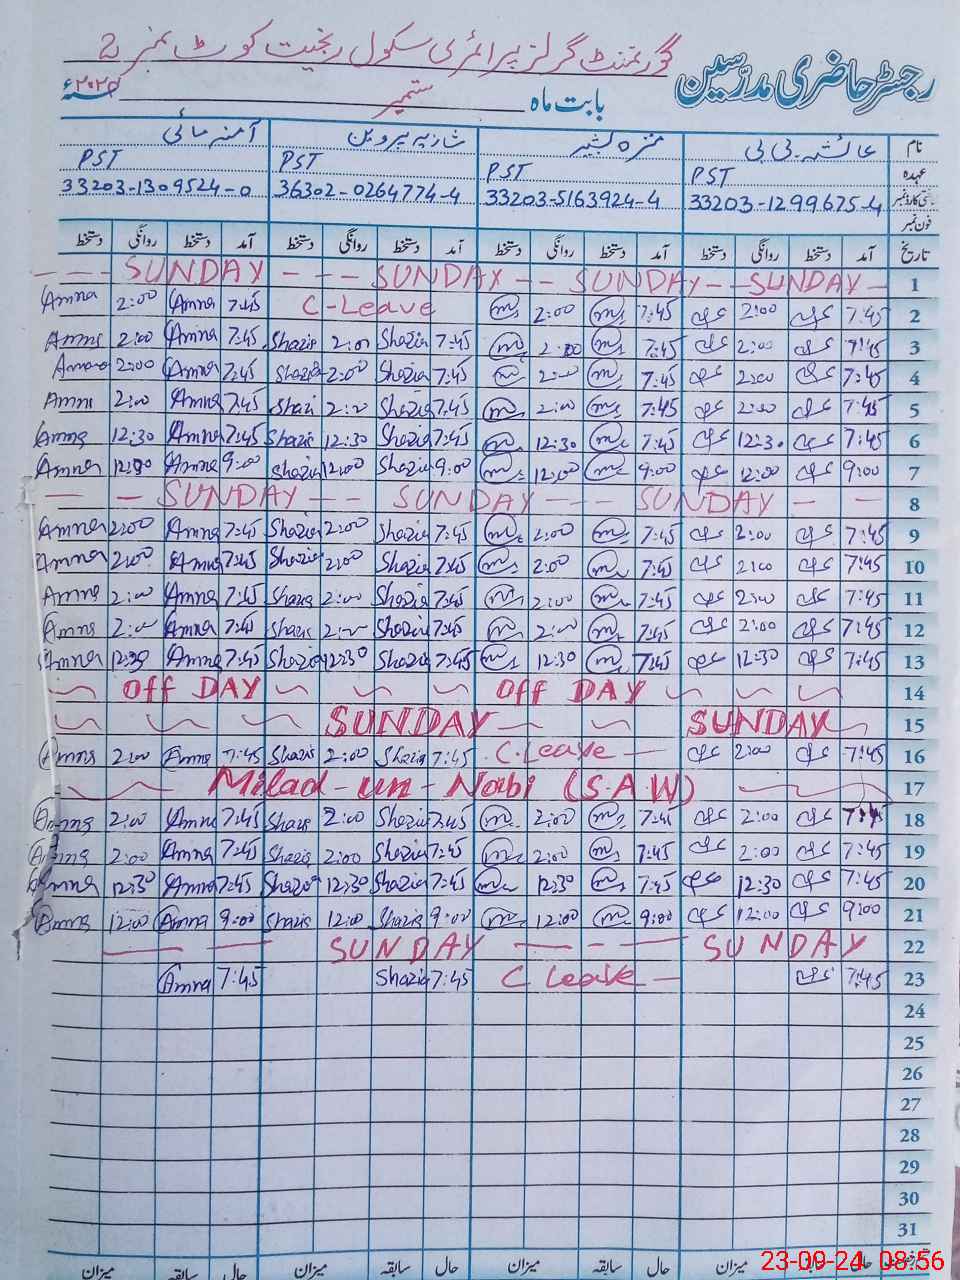 گورنمنٹ گرلز پرائمری سکول رنجیت کوٹ نمبر 2
رجسٹر حاضری مدرسین
بابت ماہ ستمبر
نام عائشہ بی بی منزہ بشیر شازیہ پروین آمنہ مائی
عہدہ PST PST PST PST
33203-1299675-4 33203-5163924-4 36302-0264774-4 33203-1309524-0
فون نمبر
تاریخ آمد دستخط روانگی دستخط آمد دستخط روانگی دستخط آمد دستخط روانگی دستخط آمد دستخط روانگی دستخط
--- SUNDAY --- SUNDAY --- SUNDAY -- SUNDAY - 1
Amna 2:00 Amna 7:45 C-Leave 2:00 7:45 2:00 7:45 2
Amna 2:00 Amna 7:45 Shazia 2:00 Shazia 7:45 2:00 7:45 2:00 7:45 3
Amna 2:00 Amna 7:45 Shazia 2:00 Shazia 7:45 2:00 7:45 2:00 7:45 4
Amna 2:00 Amna 7:45 Shazi 2:00 Shazia 7:45 2:00 7:45 2:00 7:45 5
Amna 12:30 Amna 7:45 Shazia 12:30 Shazia 7:45 12:30 7:45 12:30 7:45 6
Amna 12:00 Amna 9:00 Shazia 12:00 Shazia 9:00 12:00 9:00 12:00 9:00 7
— — SUNDAY --- SUNDAY --- SUNDAY — — 8
Amna 2:00 Amna 7:45 Shazia 2:00 Shazia 7:45 2:00 7:45 2:00 7:45 9
Amna 2:00 Amna 7:45 Shazia 2:00 Shazia 7:45 2:00 7:45 2:00 7:45 10
Amna 2:00 Amna 7:45 Shazia 2:00 Shazia 7:45 2:00 7:45 2:00 7:45 11
Amna 2:00 Amna 7:45 Shazia 2:00 Shazia 7:45 2:00 7:45 2:00 7:45 12
Amna 12:30 Amna 7:45 Shazia 12:30 Shazia 7:45 12:30 7:45 12:30 7:45 13
Off DAY Off DAY 14
SUNDAY SUNDAY 15
Amna 2:00 Amna 7:45 Shazia 2:00 Shazia 7:45 C.Leave — 2:00 7:45 16
Milad-un-Nabi (S.A.W) 17
Amna 2:00 Amna 7:45 Shazia 2:00 Shazia 7:45 2:00 7:45 2:00 7:45 18
Amna 2:00 Amna 7:45 Shazia 2:00 Shazia 7:45 2:00 7:45 2:00 7:45 19
Amna 12:30 Amna 7:45 Shazia 12:30 Shazia 7:45 12:30 7:45 12:30 7:45 20
Amna 12:00 Amna 9:00 Shazia 12:00 Shazia 9:00 12:00 9:00 12:00 9:00 21
SUNDAY — - — SUNDAY 22
Amna 7:45 Shazia 7:45 C Leave — 7:45 23
24
25
26
27
28
29
30
31
حال سابقہ میزان حال سابقہ میزان حال سابقہ میزان
23-09-24 08:56